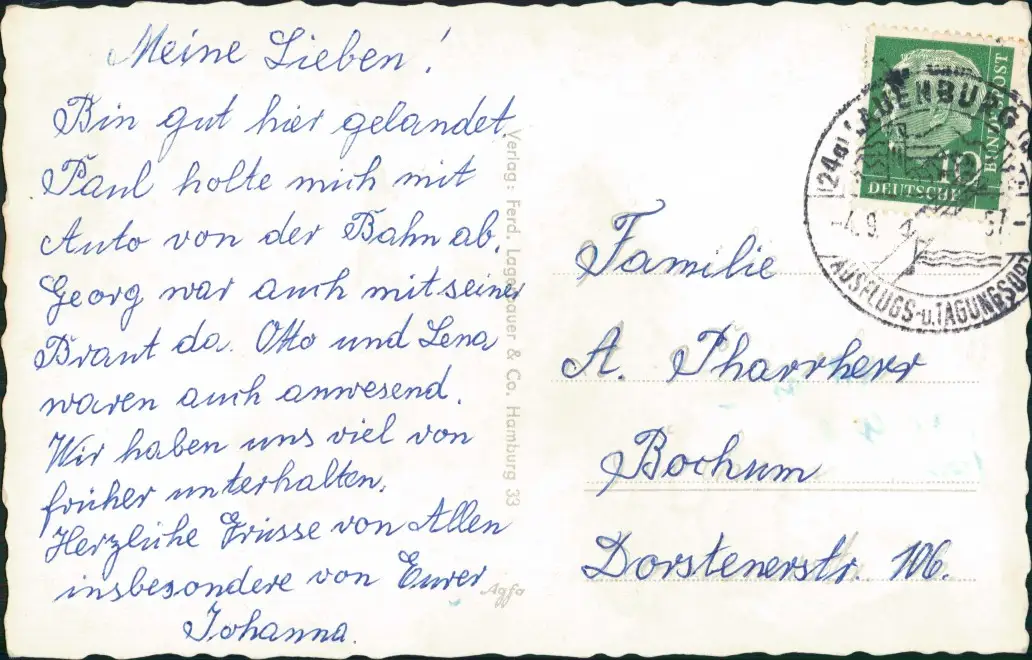 Meine Lieben!
Bin gut hier gelandet.
Paul holte mich mit
Auto von der Bahn ab.
Georg war auch mit seiner
Braut da. Otto und Lena
waren auch anwesend.
Wir haben uns viel von
früher unterhalten.
Herzliche Grüsse von Allen
insbesondere von Eurer
Johanna.
Verlag: Ferd. Lagerbauer & Co. Hamburg 33
Agfa
Familie
A. Pharrherr
Bochum
Dorstenerstr. 106.
BUNDESPOST
10
DEUTSCHE
(24a) LAUENBURG
-4.9.
AUSFLUGS- u. TAGUNGSORT